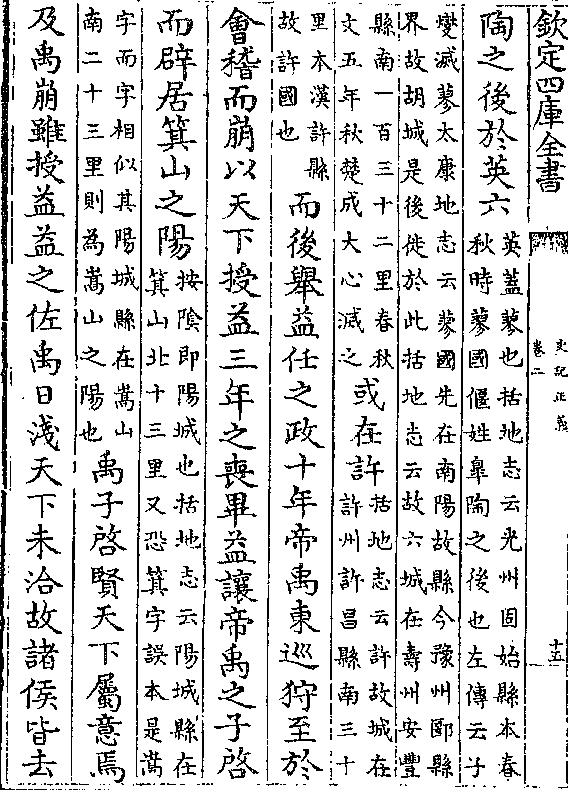 欽定四庫全書
史記正義
卷二
十五
陶之後於英六
英蓋蓼也括地志云光州固始縣本春
秋時蓼國偃姓臯陶之後也左傳云子
變滅蓼太康地志云蓼國先在南陽故縣今豫州郾縣
界故胡城是後徙於此括地志云故六城在壽州安豐
縣南一百三十二里春秋
文五年秋楚成大心滅之
或在許
括地志云許故城在
許州許昌縣南三十
里本漢許縣
故許國也
而後舉益任之政十年帝禹東巡狩至於
會稽而崩以天下授益三年之喪畢益讓帝禹之子啓
而辟居箕山之陽
按陰即陽城也括地志云陽城縣在
箕山北十三里又恐箕字誤本是嵩
字而字相似其陽城縣在嵩山
南二十三里則為嵩山之陽也
禹子啓賢天下屬意焉
及禹崩雖授益益之佐禹日淺天下未洽故諸侯皆去